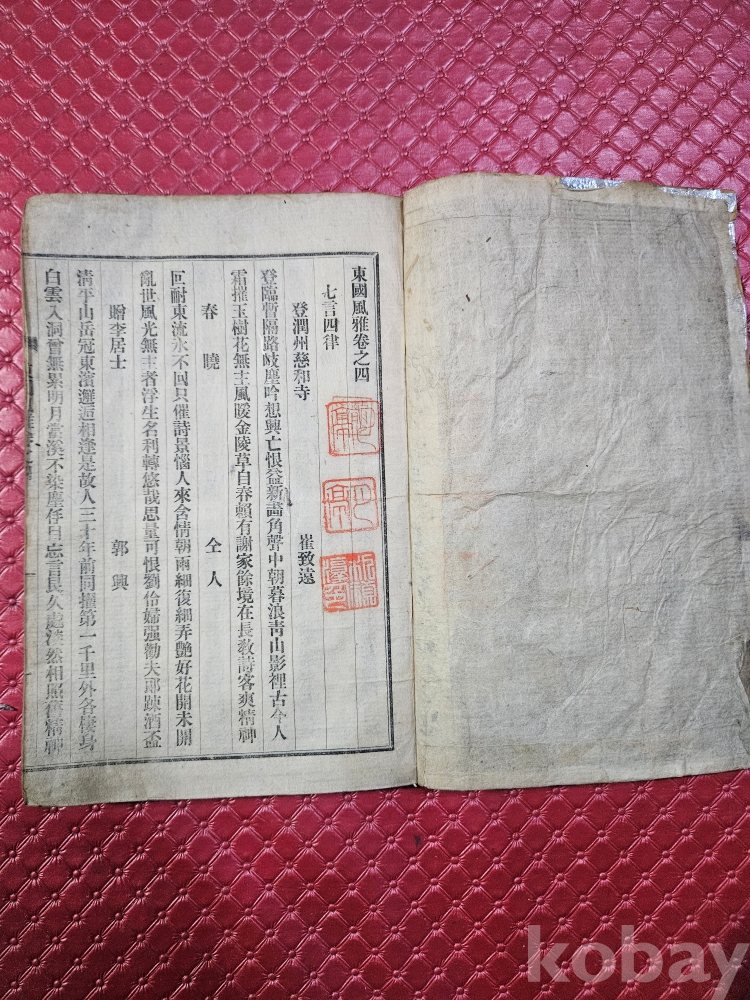 東國風雅卷之四
七言四律
登潤州慈和寺 崔致遠
登臨暫隔路岐塵吟想興亡恨益新畵角聲中朝暮浪靑山影裡古今人
霜摧玉樹花無主風暖金陵草自春賴有謝家餘境在長敎詩客爽精神
春曉 仝人
叵耐東流水不回只催詩景惱人來含情朝雨細復細弄艶好花開未開
亂世風光無主者浮生名利轉悠哉思量可恨劉伶婦强勸夫郞踈酒盃
贈李居士 郭輿
淸平山岳冠東濱邂逅相逢是故人三十年前同擢第一千里外各棲身
白雲入洞曾無累明月當溪不染塵 日忘言良久處淡然相照舊精神
kobay